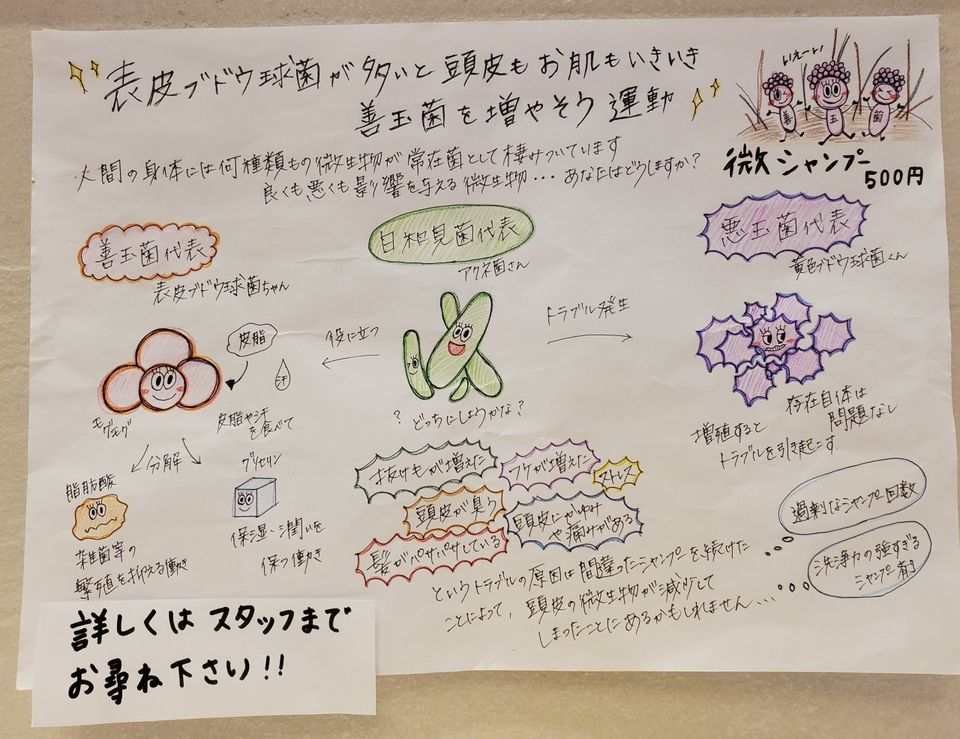 表皮ブドウ球菌が多いと頭皮もお肌もいきいき
善玉菌を増やそう運動
いえーい
善
玉
菌
微シャンプー
500円
人間の身体には何種類もの微生物が常在菌として棲みついています
良くも悪くも影響を与える微生物・・・あなたはどうしますか?
善玉菌代表
表皮ブドウ球菌ちゃん
日和見菌代表
アクネ菌さん
悪玉菌代表
黄色ブドウ球菌くん
皮脂
汗
皮脂や汗
を食べて
モグモグ
分解
脂肪酸
雑菌等の
繁殖を抑える働き
グリセリン
保湿・潤いを
保つ働き
役に立つ
トラブル発生
? どっちにしようかな?
存在自体は
問題なし
増殖すると
トラブルを引き起こす
抜けもが増えた
フケが増えた
ストレス
頭皮が臭う
頭皮にかゆみ
や痛みがある
髪がパサパサしている
というトラブルの原因は間違ったシャンプーを続けた
ことによって、頭皮の微生物が減少して
しまったことにあるかもしれません・・・
過剰なシャンプー回数
洗浄力の強すぎる
シャンプー剤
詳しくはスタッフまで
お尋ね下さい!!